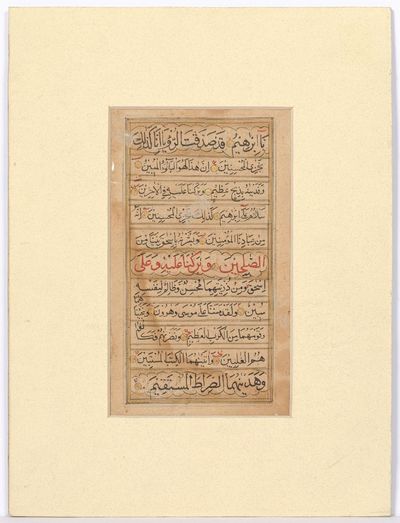 يا ابرهيم قد صدقت الرؤيا انا كذلك
نجزي المحسنين ان هذا لهو البلؤا المبين
وفدينه بذبح عظيم وتركنا عليه في الاخرين
سلام على ابرهيم كذلك نجزي المحسنين انه
من عبادنا المؤمنين وبشرنه باسحق نبيا من
الصلحين وبركنا عليه وعلى
اسحق ومن ذريتهما محسن وظالم لنفسه
مبين ولقد مننا على موسى وهرون ونجينهما
وقومهما من الكرب العظيم ونصرنهم فكانوا
هم الغلبين واتينهما الكتب المستبين
وهدينهما الصراط المستقيم